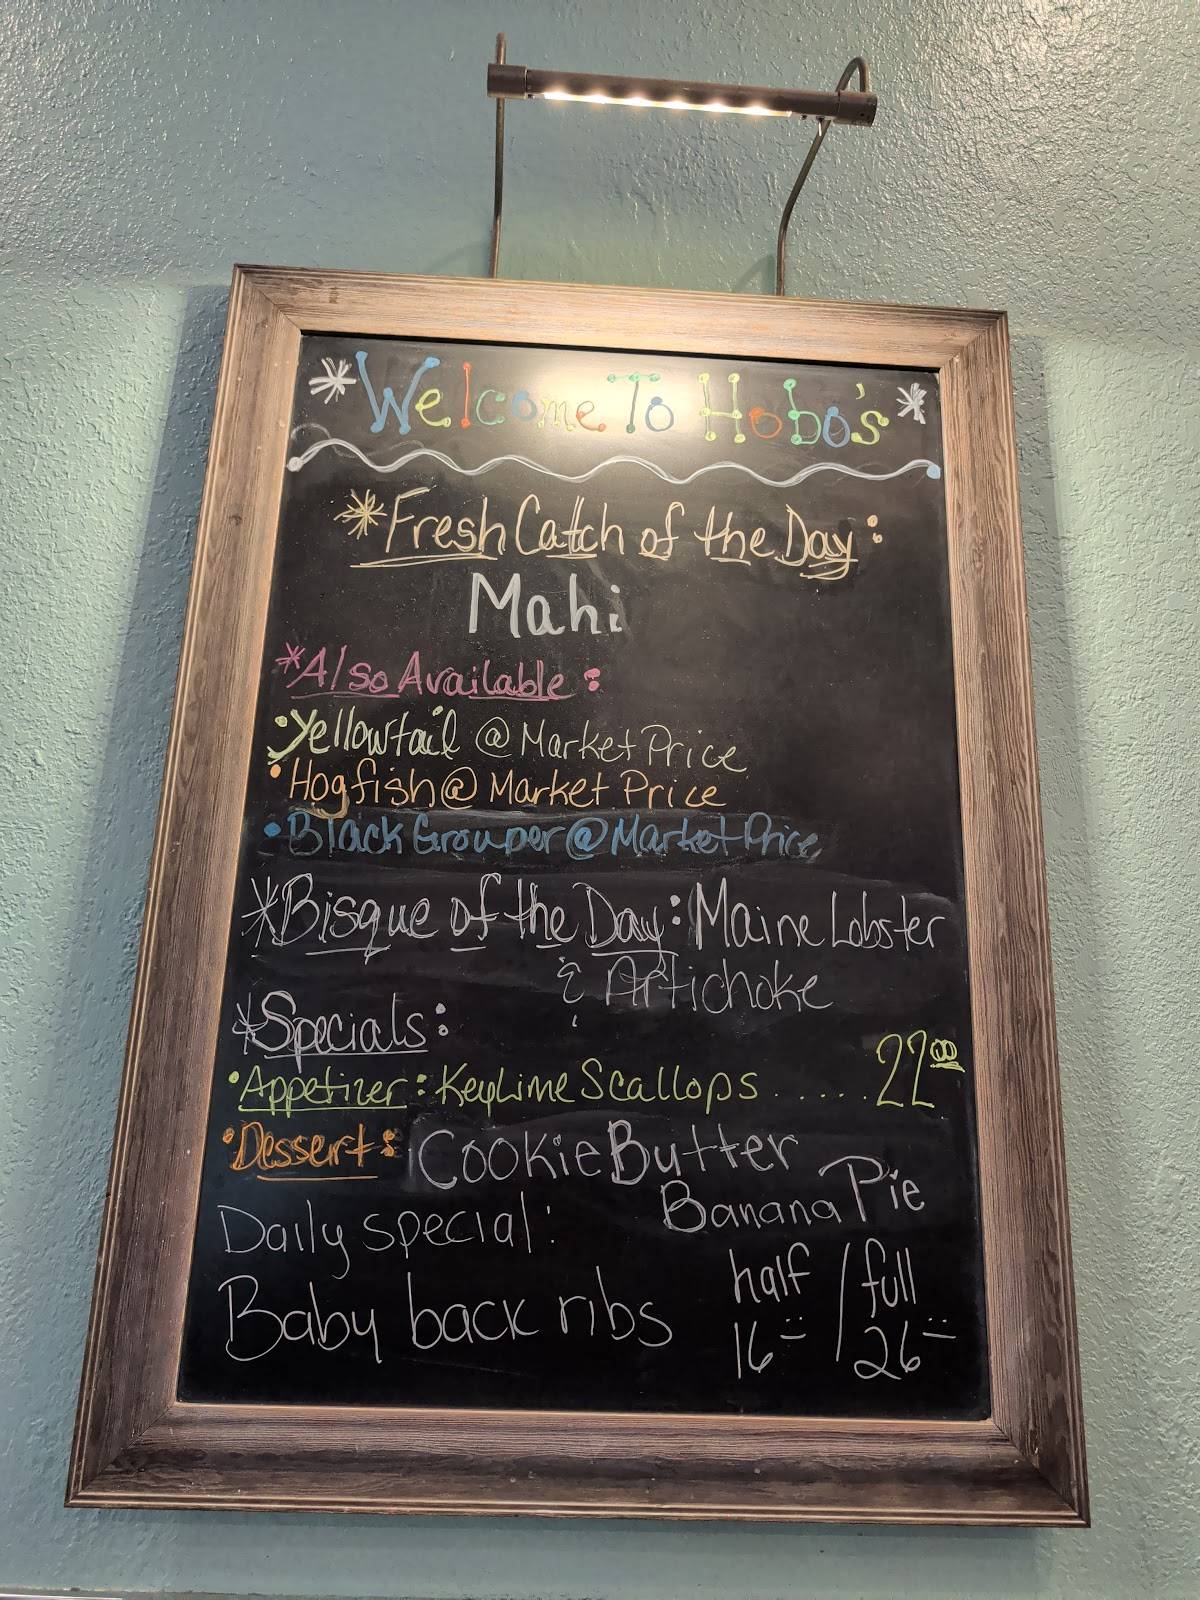 *Welcome To Hobo's*
*Fresh Catch of the Day:
Mahi
*Also Available:
•Yellowtail @ Market Price
•Hogfish @ Market Price
•Black Grouper @ Market Price
*Bisque of the Day: Maine Lobster
& Artichoke
*Specials:
•Appetizer: Key Lime Scallops ..... 22.00
•Dessert: Cookie Butter
Banana Pie
Daily special:
Baby back ribs
half / full
16 / 26